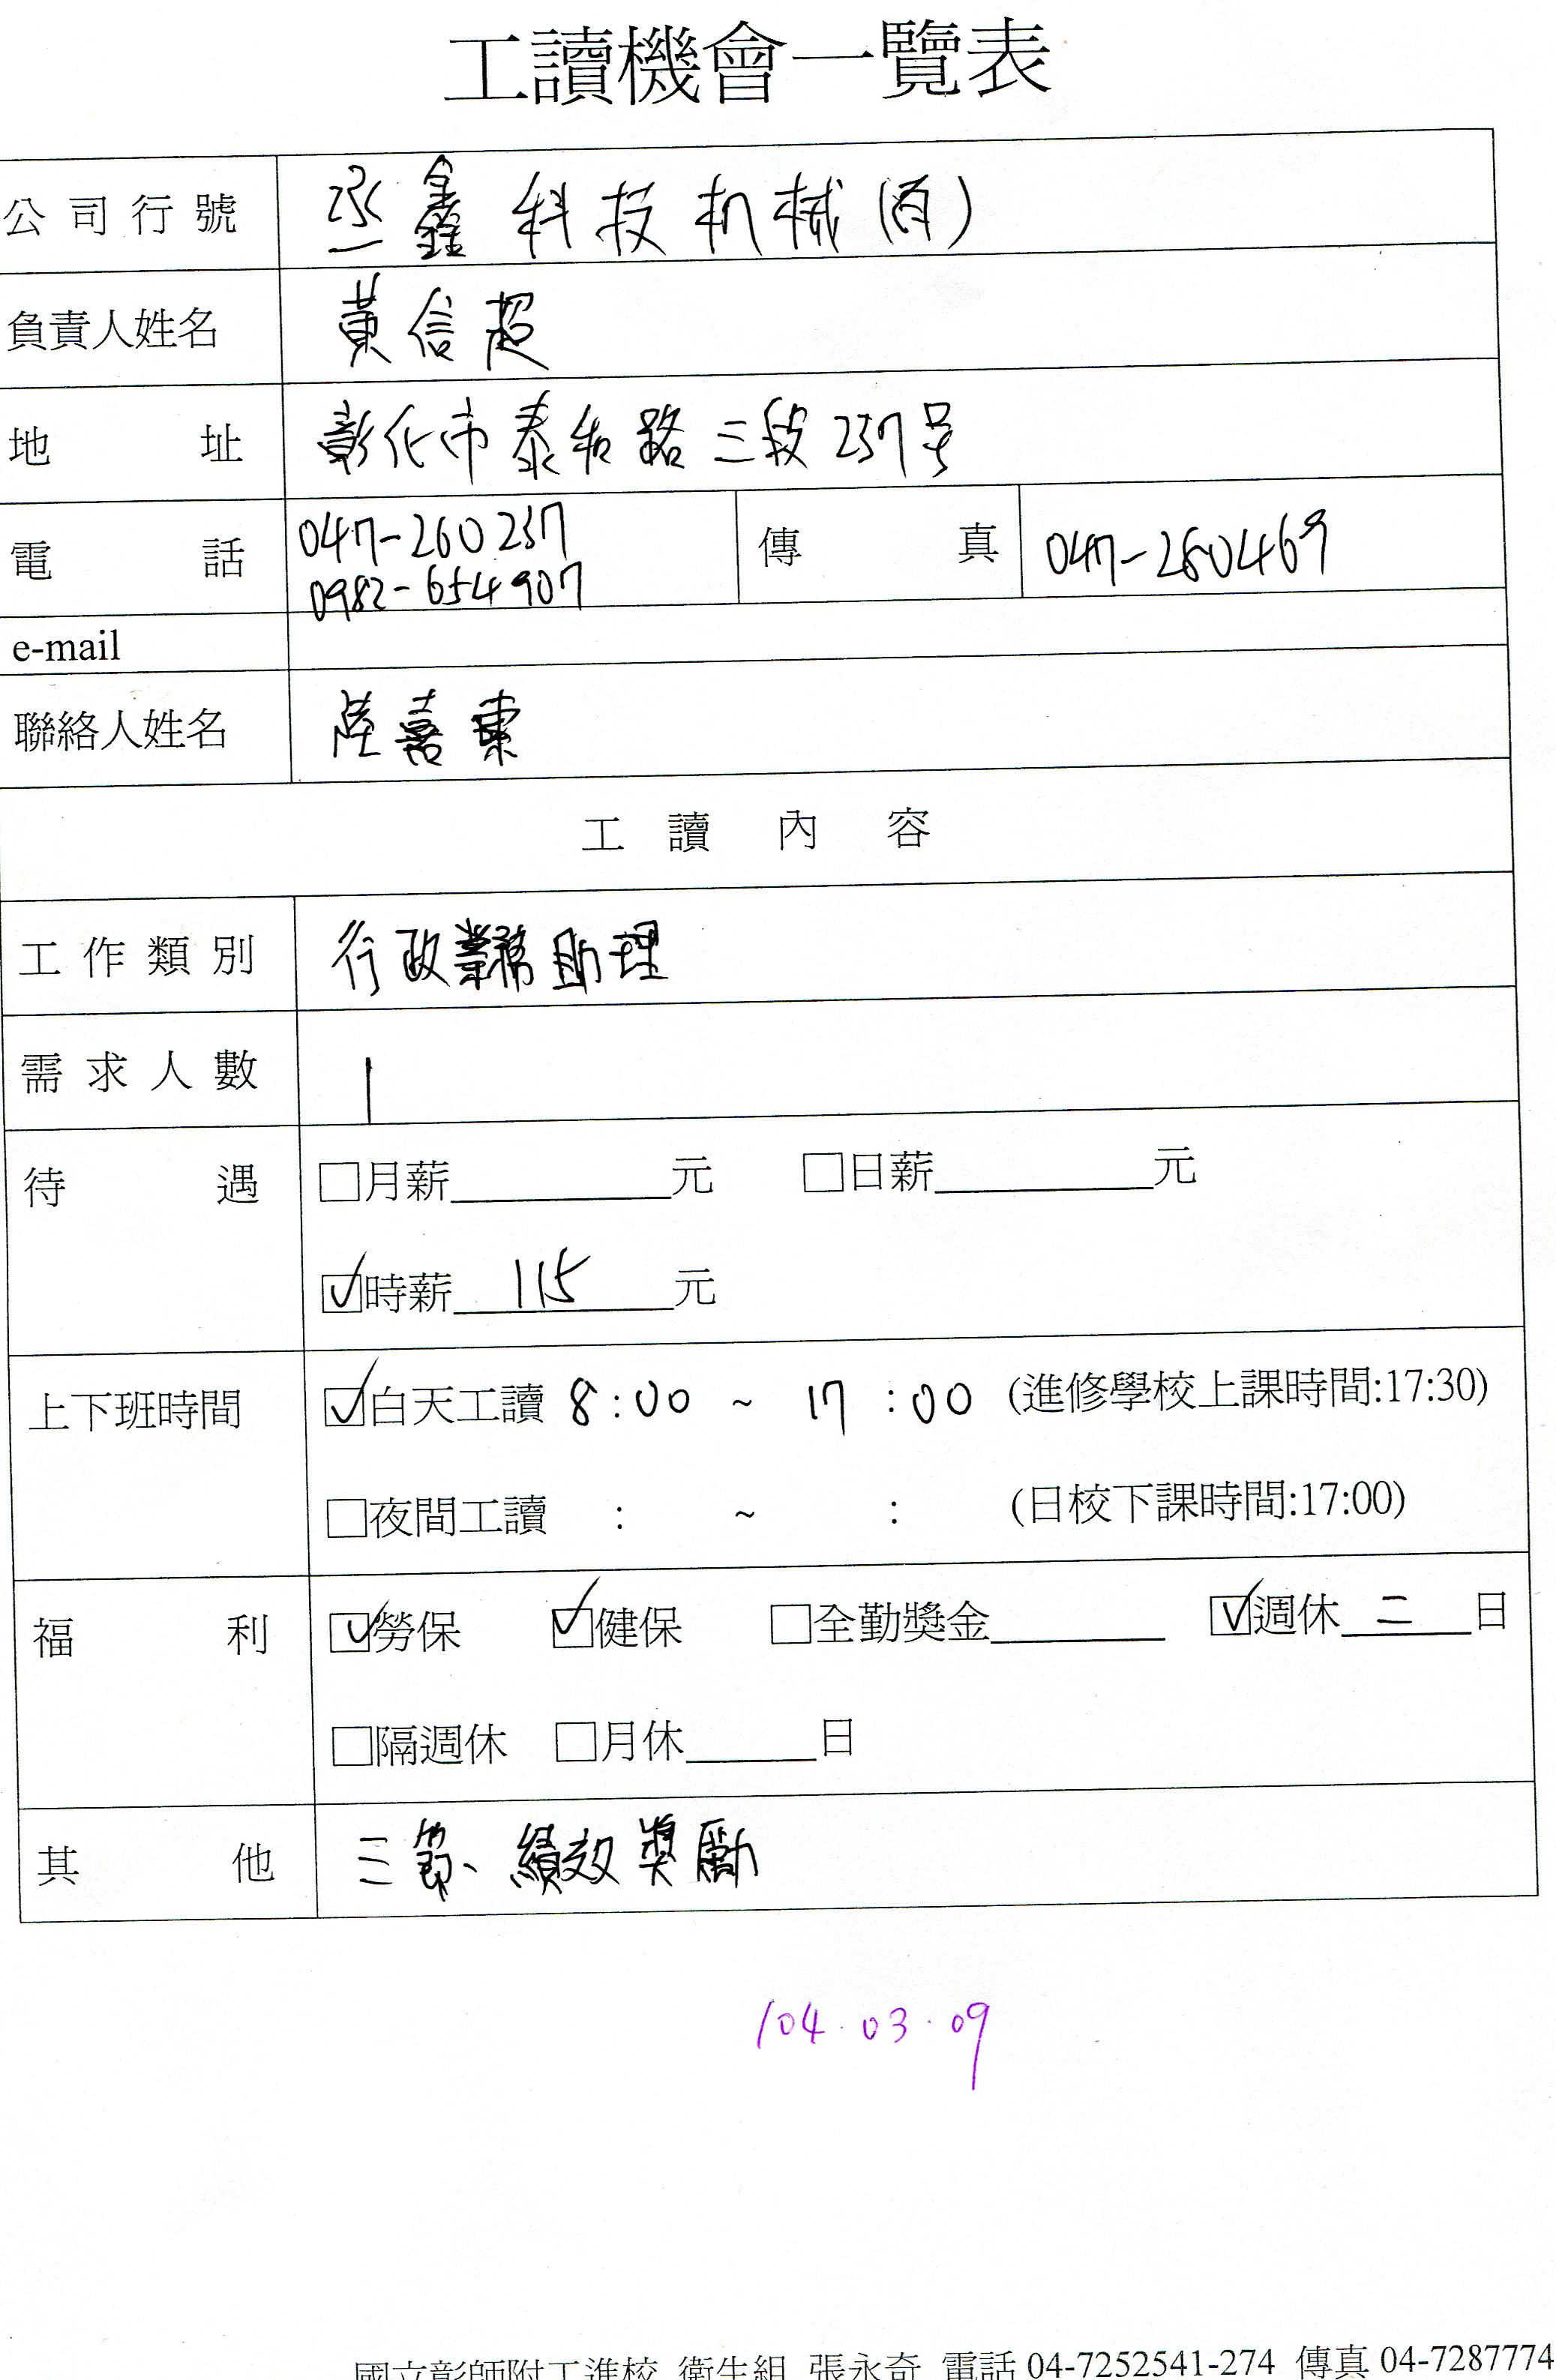 工讀機會一覽表
公司行號 丞鑫科技机械(有)
負責人姓名 黃信超
地址 彰化市泰和路三段237号
電話 047-260237 傳真 047-280469
0982-654907
e-mail
聯絡人姓名 陸嘉東
工讀內容
工作類別 行政業務助理
需求人數 1
待遇 □月薪 元 □日薪 元
☑時薪 115 元
上下班時間 ☑白天工讀 8:00 ~ 17:00 (進修學校上課時間:17:30)
□夜間工讀 : ~ : (日校下課時間:17:00)
福利 ☑勞保 ☑健保 □全勤獎金 ☑週休 二 日
□隔週休 □月休 日
其他 三節、績效獎勵
104.03.09
國立彰師附工進校 衛生組 張永奇 電話 04-7252541-274 傳真 04-7287774